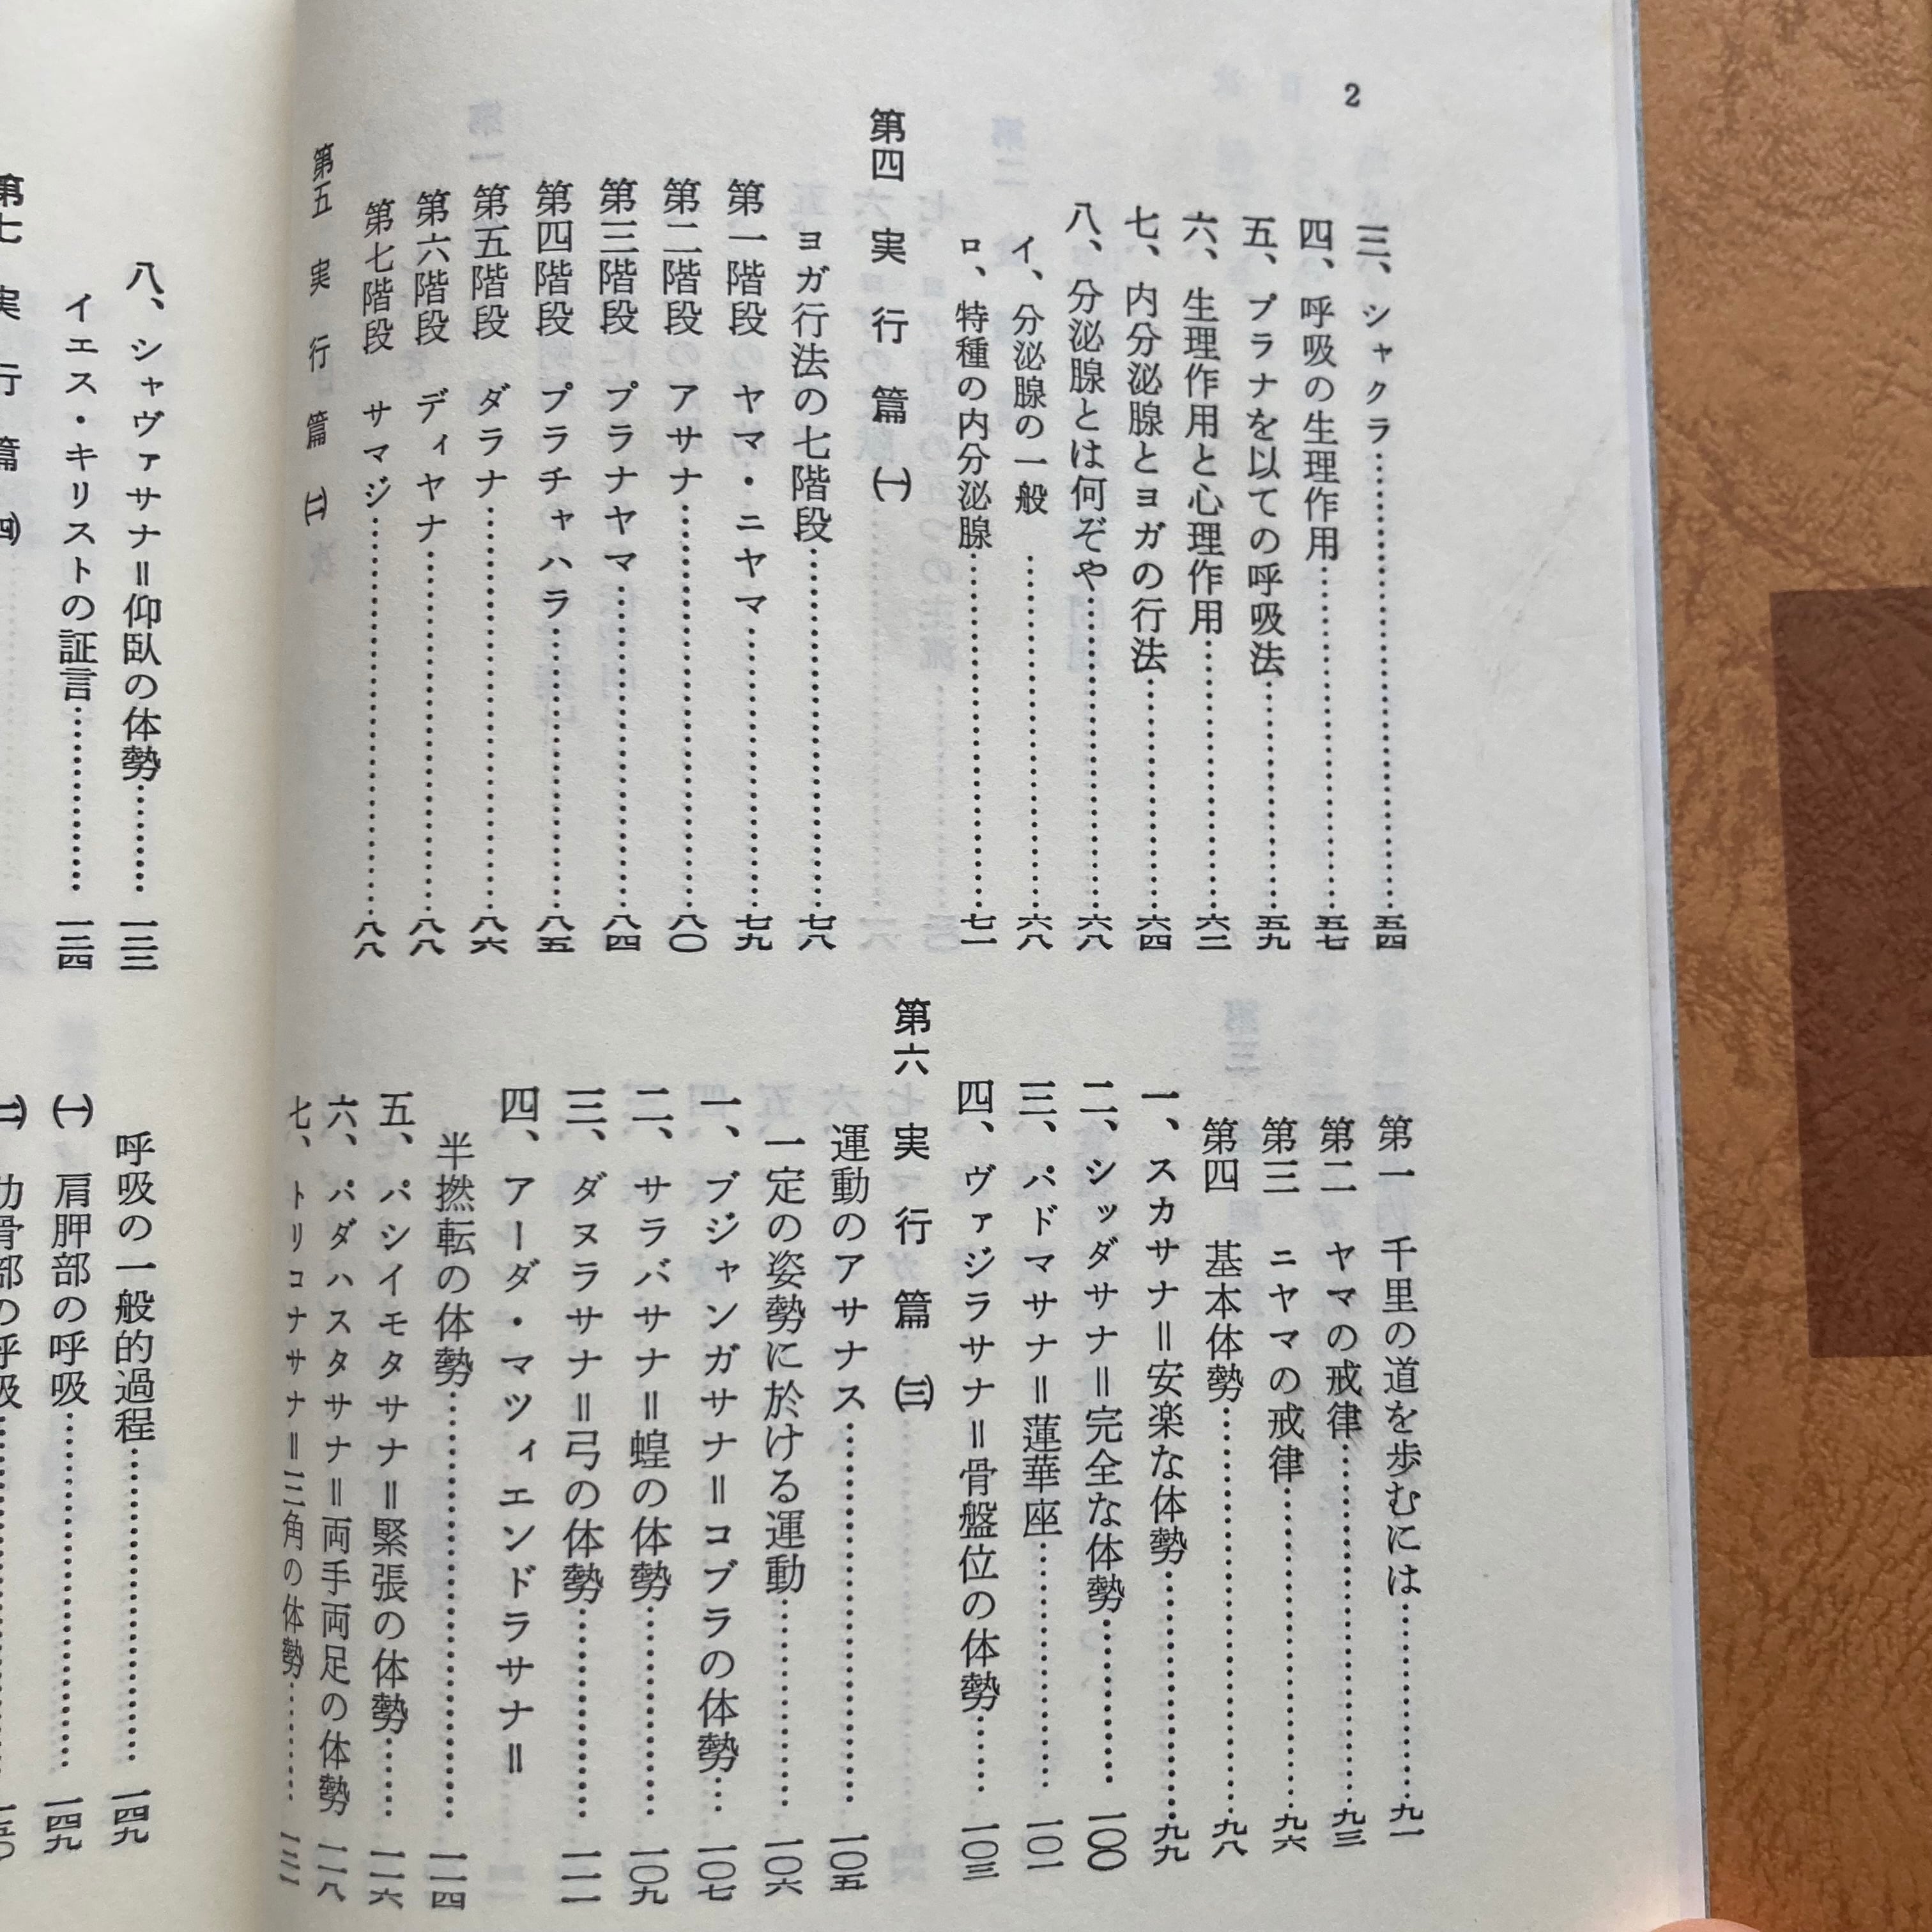 2
三、シャクラ……五四
四、呼吸の生理作用……五七
五、プラナを以ての呼吸法……五九
六、生理作用と心理作用……六二
七、内分泌腺とヨガの行法……六四
八、分泌腺とは何ぞや……六八
イ、分泌腺の一般……六八
ロ、特種の内分泌腺……七一
第四 実行篇 ㈠
ヨガ行法の七階段……七八
第一階段 ヤマ・ニヤマ……七九
第二階段 アサナ……八〇
第三階段 プラナヤマ……八四
第四階段 プラチャハラ……八五
第五階段 ダラナ……八六
第六階段 ディヤナ……八八
第七階段 サマジ……八八
第五 実行篇 ㈡
第一 千里の道を歩むには……九一
第二 ヤマの戒律……九三
第三 ニヤマの戒律……九六
第四 基本体勢……九八
一、スカサナ＝安楽な体勢……九九
二、シッダサナ＝完全な体勢……一〇〇
三、パドマサナ＝蓮華座……一〇一
四、ヴァジラサナ＝骨盤位の体勢……一〇三
第六 実行篇 ㈢
運動のアサナス……一〇五
一定の姿勢に於ける運動……一〇六
一、ブジャンガサナ＝コブラの体勢……一〇七
二、サラバサナ＝蝗の体勢……一〇九
三、ダヌラサナ＝弓の体勢……一一一
四、アーダ・マツィエンドラサナ＝
半撚転の体勢……一一四
五、パシイモタサナ＝緊張の体勢……一一六
六、パダハスタサナ＝両手両足の体勢……一一八
七、トリコナサナ＝三角の体勢……
八、シャヴァサナ＝仰臥の体勢……一三三
イエス・キリストの証言……一三四
第七 実行篇 ㈣
呼吸の一般的過程……一四九
㈠ 肩胛部の呼吸……一四九